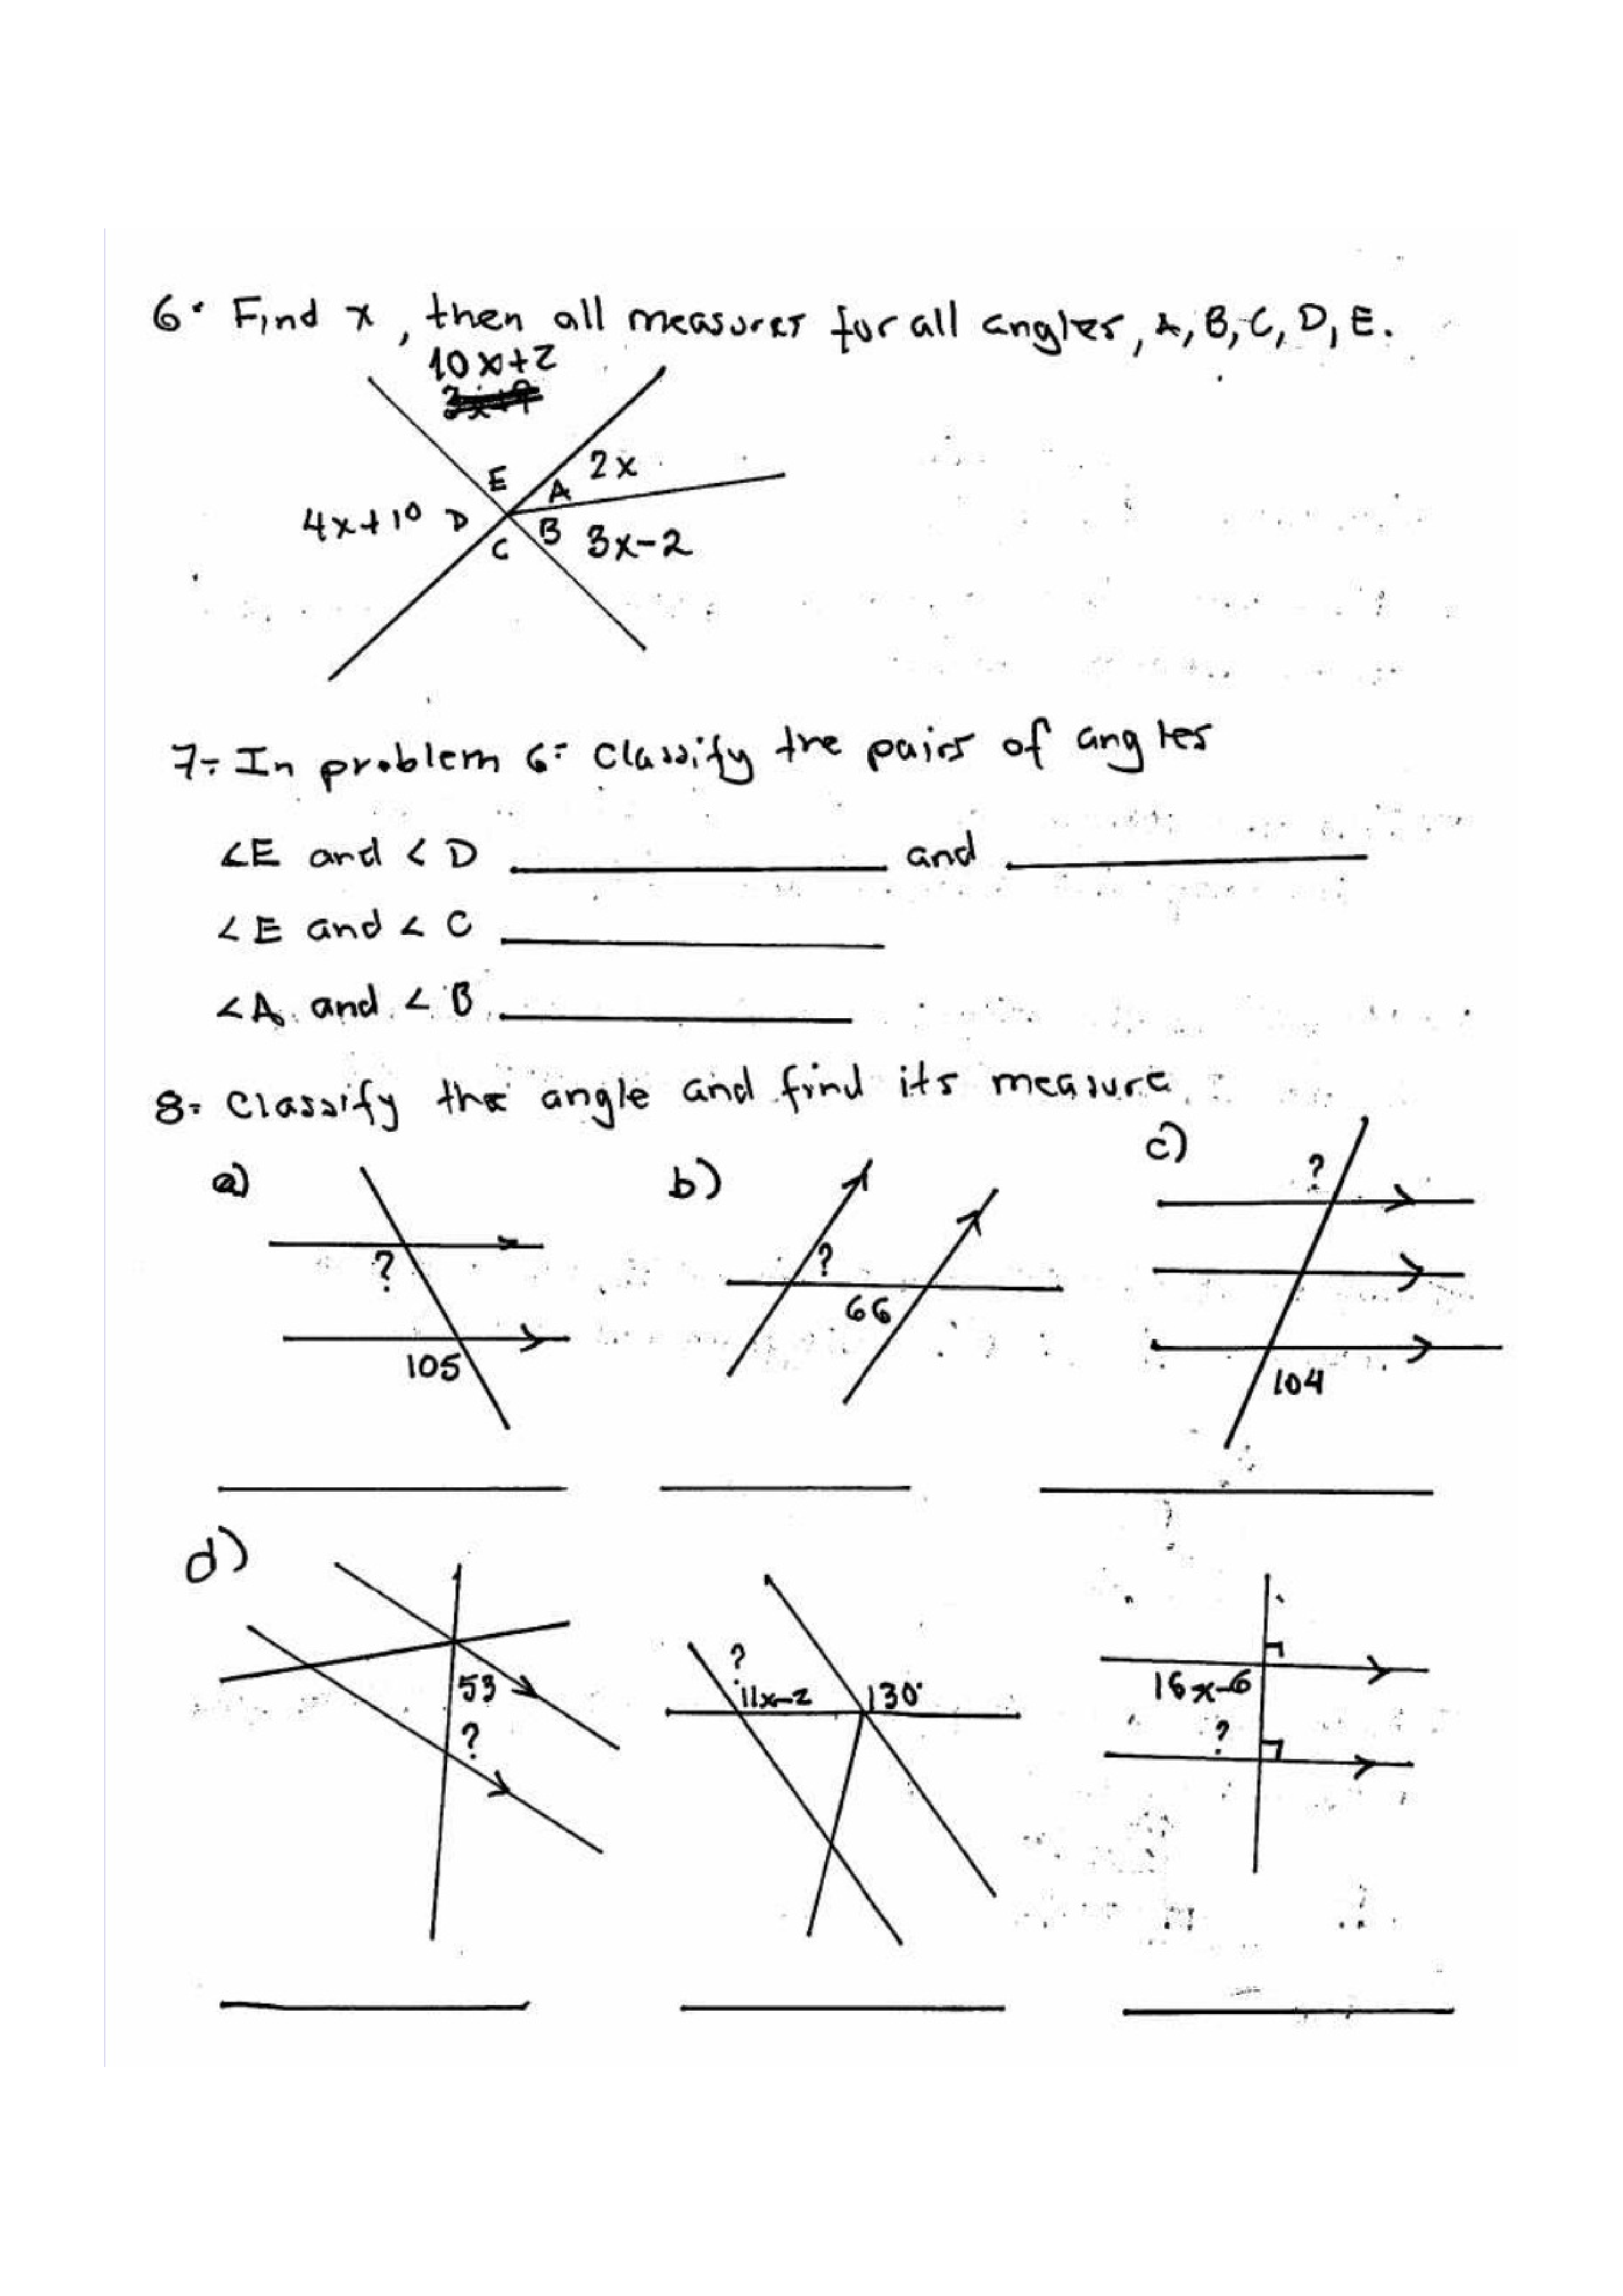 6. Find x, then all measures for all angles, A, B, C, D, E.
10x+2
E
2x
A
4x+10 D
B 3x-2
C
7- In problem 6: Classify the pairs of angles
∠E and ∠D and
∠E and ∠C
∠A and ∠B
8- Classify the angle and find its measure
a) b) c)
?
105
?
66
?
104
d)
53
?
?
11x-2 130°
16x-6
?